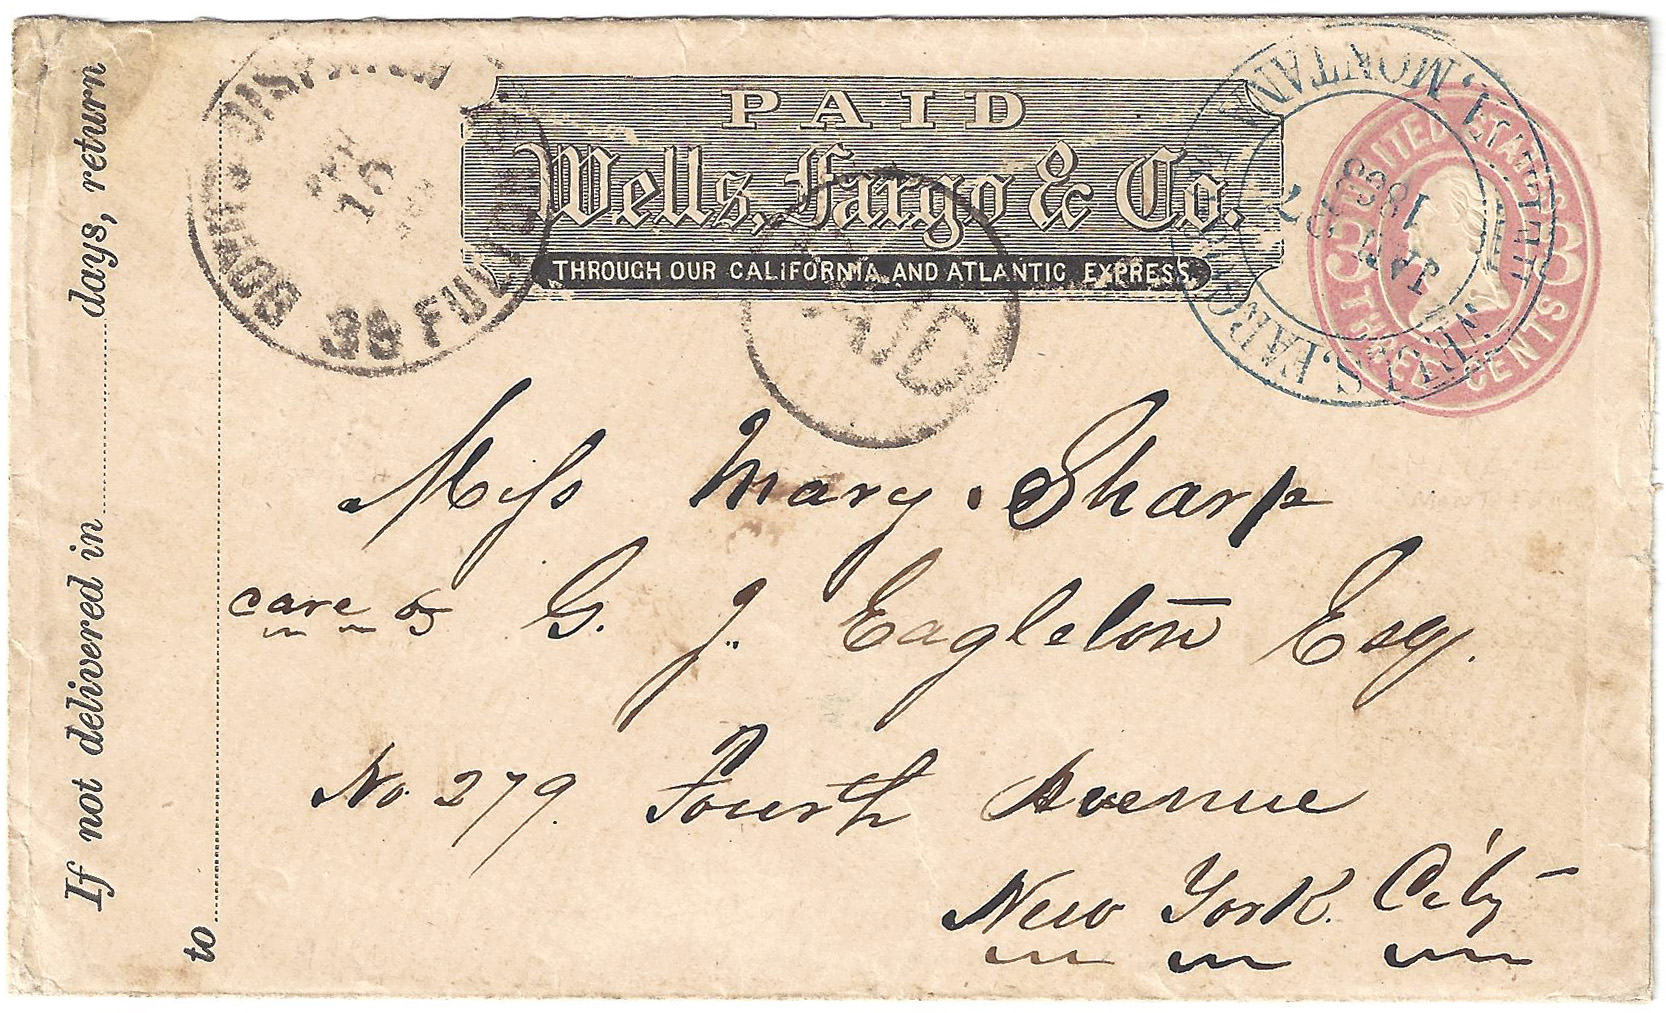 If not delivered in days, return
to
PAID
Wells, Fargo & Co.
THROUGH OUR CALIFORNIA AND ATLANTIC EXPRESS.
BOYD'S DISPATCH
39 FULTON
FEB
10
PAID
WELLS, FARGO & CO.
JAN
27
1868
MONTANA
UNITED STATES
3 3
THREE CENTS
Miss Mary Sharp
care of G. J. Eagleton Esq.
No. 279. Fourth Avenue
New York City